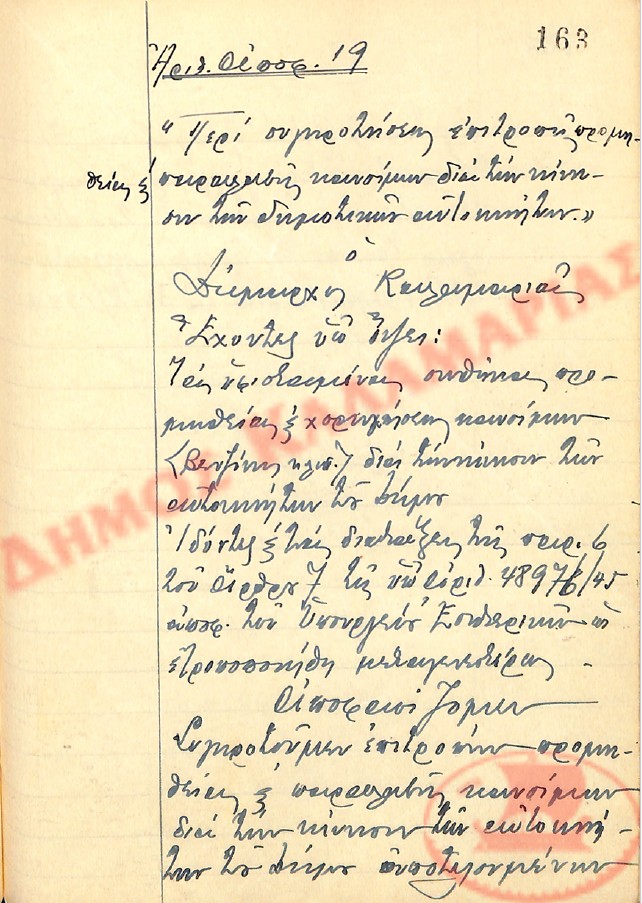 163
Ἀριθ. Ἀποφ. 19
"Περί συγκροτήσεως ἐπιτροπῆς προμη-
θείας & παραλαβῆς καυσίμων διά τήν κίνη-
σιν τῶν Δημοτικῶν αὐτοκινήτων."
ὁ
Δήμαρχος Καλαμαριᾶς
Ἔχοντες ὑπ' ὄψει:
Τάς ὑφισταμένας συνθήκας προ-
μηθείας & χορηγήσεως καυσίμων
(Βενζίνης κλπ.) διά τήν κίνησιν τῶν
αὐτοκινήτων τοῦ Δήμου
Ἰδόντες & τάς διατάξεις τῆς παρ. 6
τοῦ ἄρθρου 7 τῆς ὑπ' ἀριθ. 48976/45
ἀποφ. τοῦ Ὑπουργείου Ἐσωτερικῶν ὡς
ἐτροποποιήθη μεταγενεστέρως
Ἀποφασίζομεν
Συγκροτοῦμεν ἐπιτροπήν προμη-
θείας & παραλαβῆς καυσίμων
διά τήν κίνησιν τῶν αὐτοκινή-
των τοῦ Δήμου ἀποτελουμένην
ΔΗΜΟΣ ΚΑΛΑΜΑΡΙΑΣ